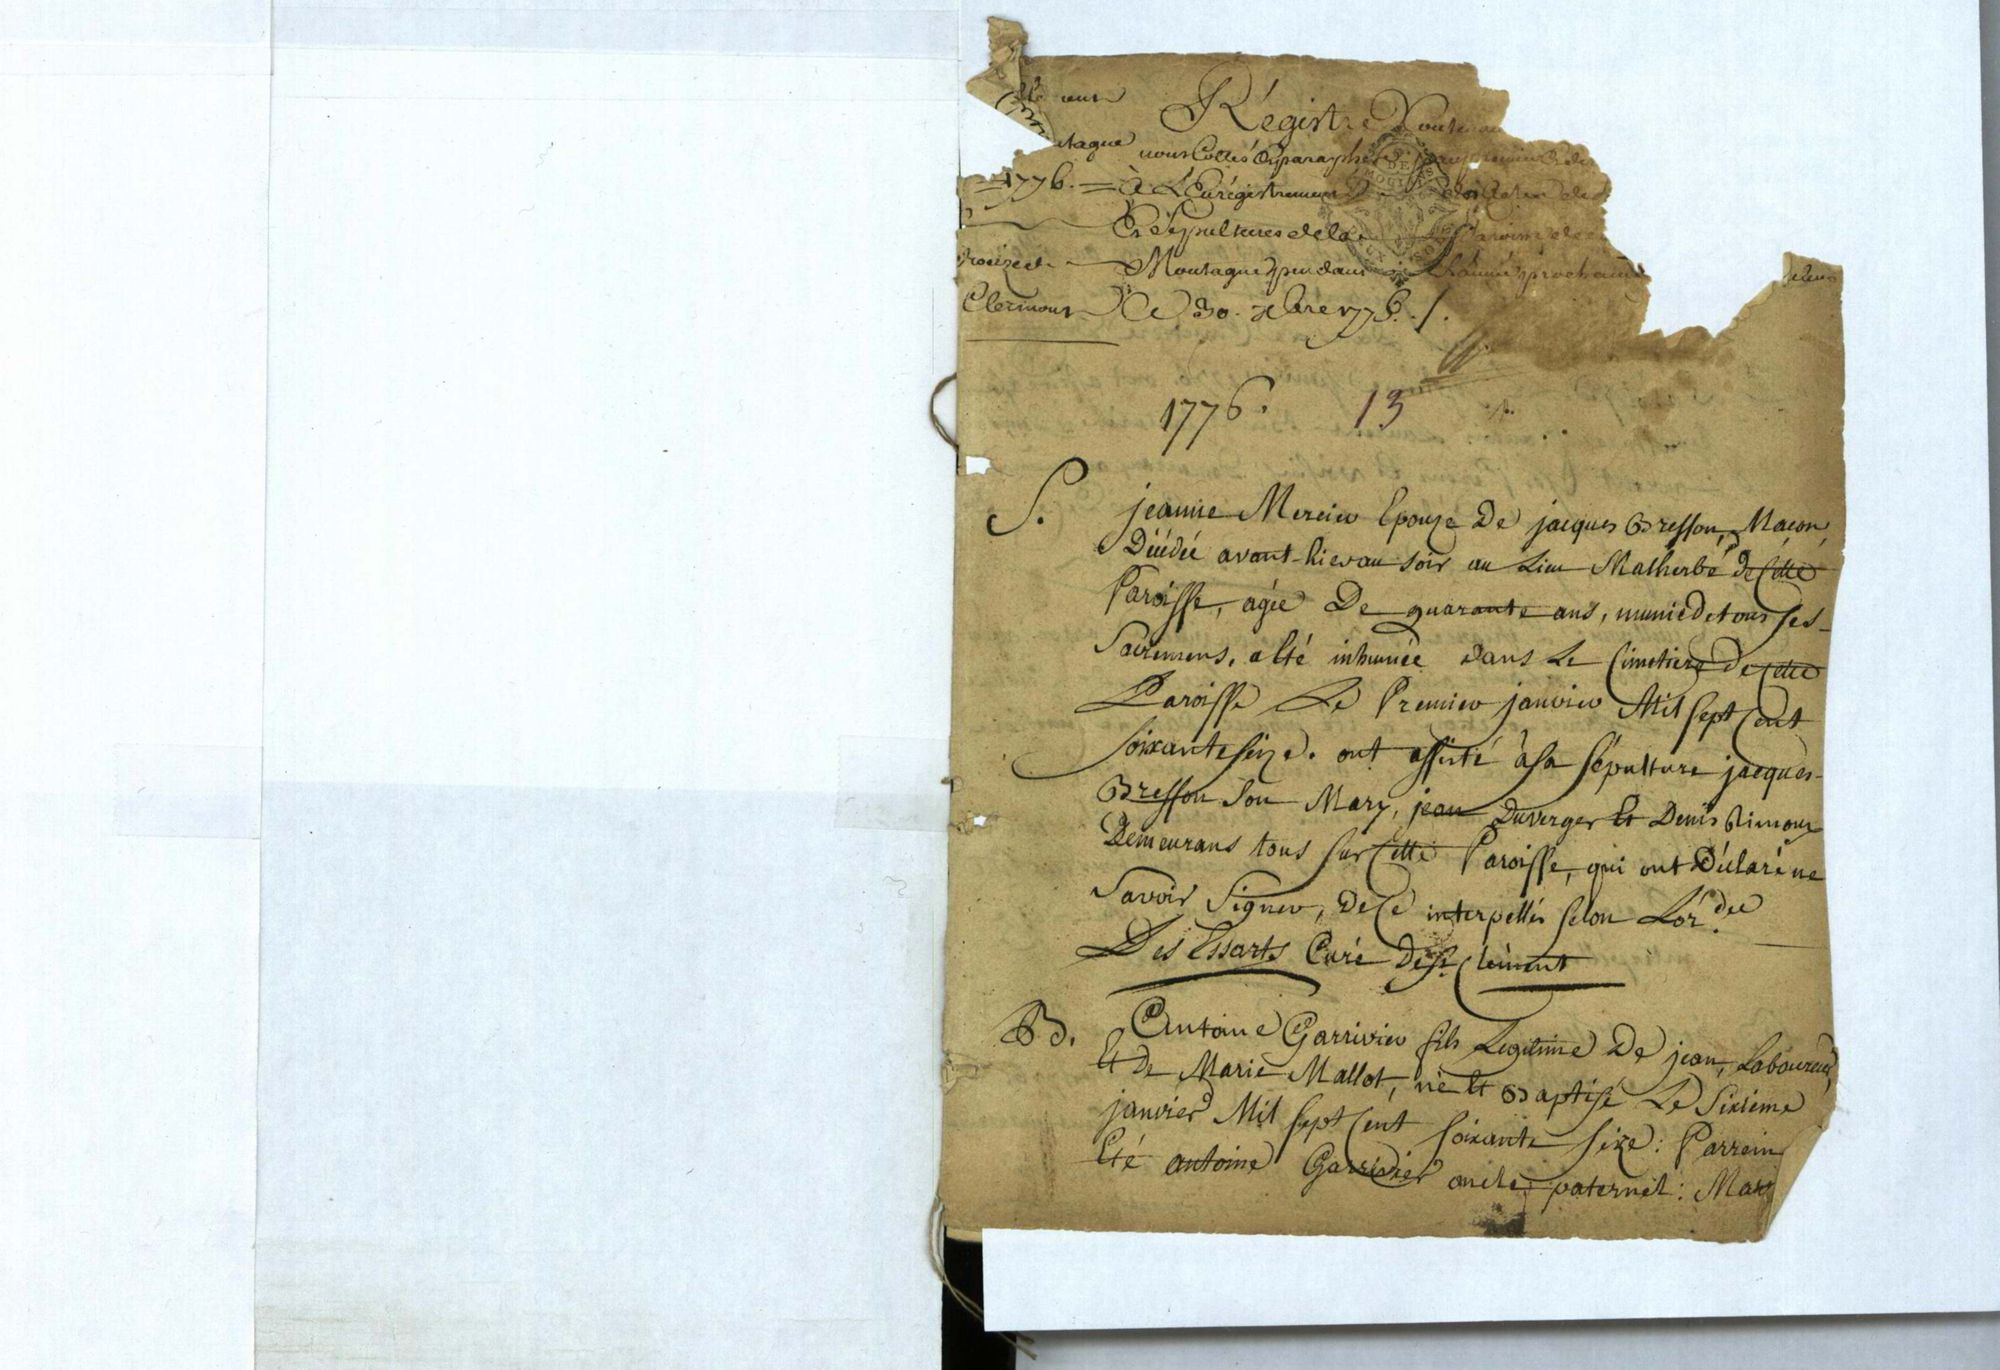 Régistre
nous Cottés & paraphés
1776. à L'Enrégistrement
& Sépultures de la Paroisse de
Montagne pendant L'année prochaine
Clermont Ce 30. Xbre 1775 ./.
1776. 13
S. jeanne Mercier Epouze De jacques Bresson, Macon,
Décédée avant-hier au soir au Lieu Malherbe De Cette
Paroisse, agée De quarante ans, munie de tous ses
Sacremens, a Eté inhumée dans Le Cimetiere De Cette
Paroisse Le Premier janvier Mil sept Cent
soixante seize. ont assisté à sa sépulture jacques
Bresson son Mary, jean Duverger Et Denis
Demeurans tous sur Cette Paroisse, qui ont Déclaré ne
Savoir Signer, De Ce interpellés selon L'or.dce
Des Essarts Curé De St. Clément
B. Antoine Garrivier fils Legitime De jean, Laboureur,
Et de Marie Mallot, né Et Baptisé Le Sixième
janvier Mil sept Cent soixante seize: Parrein
Eté antoine Garrivier oncle paternel: Mar